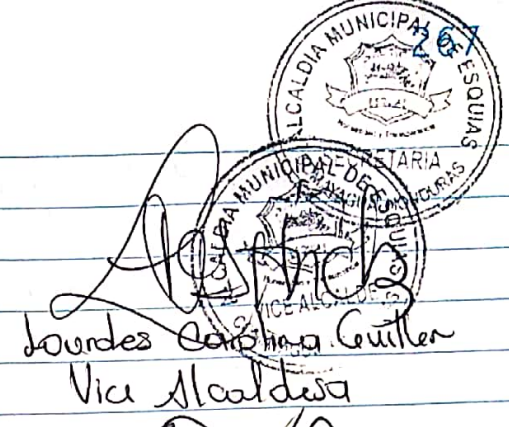 267
ALCALDIA MUNICIPAL DE ESQUIAS
SECRETARIA
HONDURAS
ALCALDIA MUNICIPAL DE ESQUIAS
VICE ALCALDE
Lourdes Carolina Guillen
Vice Alcaldesa